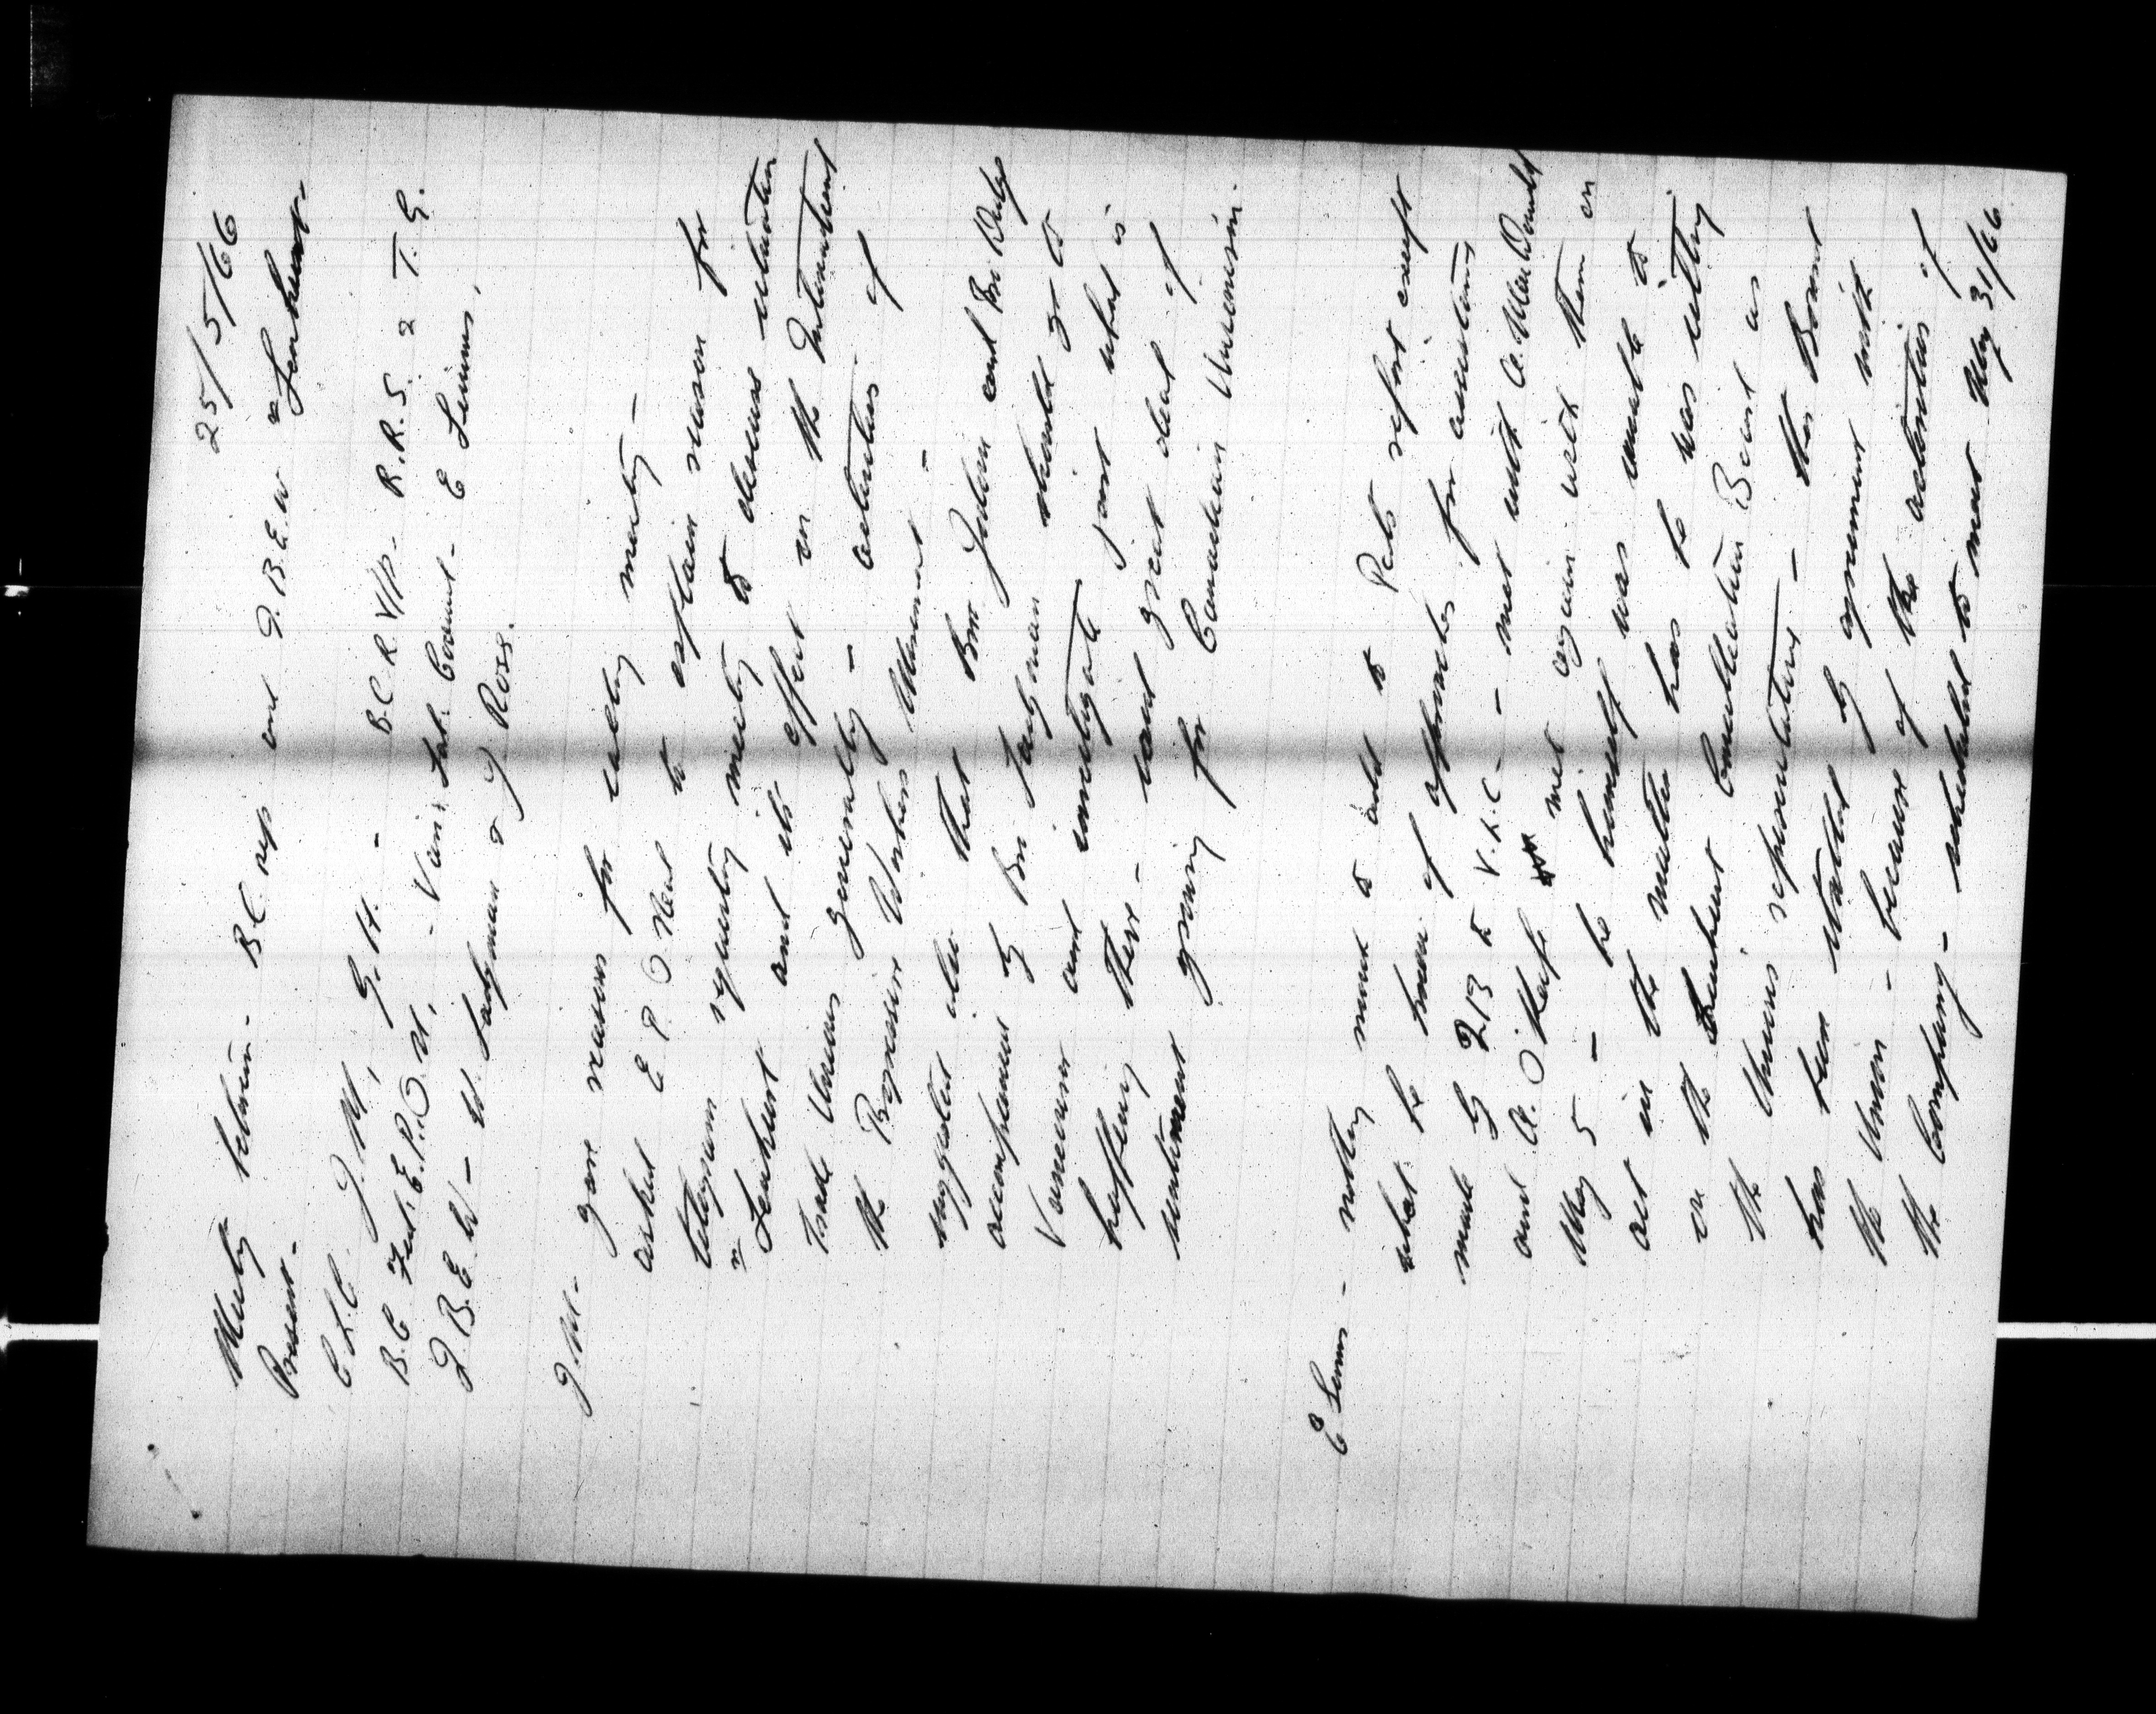 25/5/66
Meeting between - B.C. rep and I.B.E.W. re Lenkurt -
Present -
C.L.C. J.M., G.H. - B.C.R. V/P - R.R.S. & T.G.
B.C. Fed. E.P.O'N. - Van. Lab. Council - E Simms,
I.B.E.W - W Ladyman & J. Ross.
J.M. - gave reasons for calling meeting -
asked E.P. O'Neal to explain reason for
telegram requesting meeting to discuss situation
re Lenkurt and its effect on the International
Trade Unions generally - activities of
the Progressive Workers Movement -
suggested also that Bro Jodoin and Bro Dodge
accompanied by Bro Ladyman should go to
Vancouver and investigate just what is
happening there - and great deal of
sentiment growing for Canadian Unionism.
E Simms - nothing much to add to Pats report except
what he knew of approaches for assistance
made by 213 to V.L.C - met with A. MacDonald
and A. O'Keefe met again with them on
May 5 - he himself was unable to
act in the matter has he was sitting
on the Lenkurt Conciliation Board as
the Unions representative - this Board
has been started by agreement with
the Union - because of the activities of
the Company - scheduled to meet May 31/66.